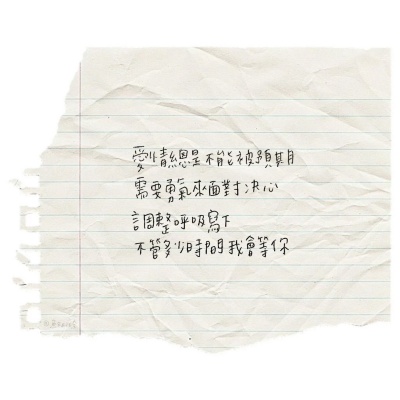 愛情總是不能被預期
需要勇氣來面對決心
調整呼吸寫下
不管多少時間我會等你